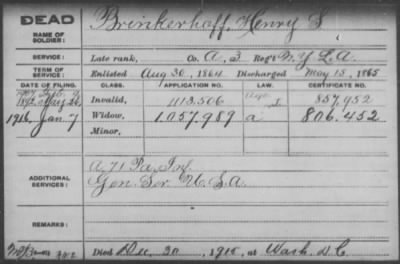 DEAD
NAME OF SOLDIER:
Brinkerhoff, Henry S
SERVICE:
Late rank, Co. A, 3 Reg't N.Y. L.A.
TERM OF SERVICE:
Enlisted Aug 30, 1864 Discharged May 15, 1865
DATE OF FILING. CLASS. APPLICATION NO. LAW. CERTIFICATE NO.
1907 Feb. 9
1892 Aug 26 Invalid, 1113.506 857,952
1916, Jan. 7 Widow, 1.057.989 a 806.452
Minor,
ADDITIONAL SERVICES:
A. 71 Pa. Inf
Gen. Ser. U.S.A.
REMARKS:
Died Dec. 30, 1915, at Wash. D.C.